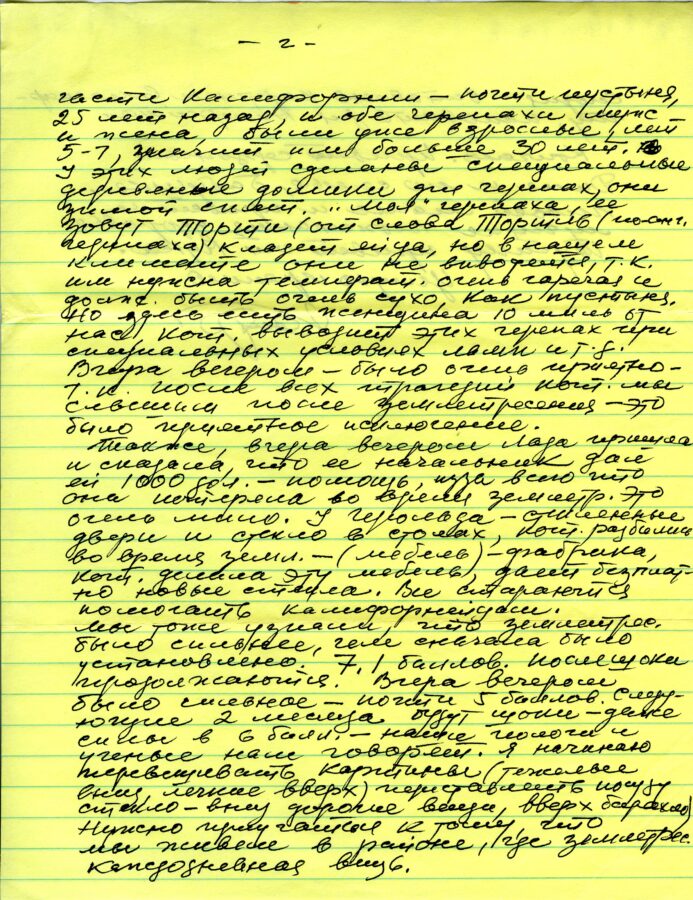 - 2 -
части Калифорнии - почти пустыня,
25 лет назад, и обе черепахи муж
и жена, были уже взрослые, лет
5-7, значит им больше 30 лет.
У этих людей сделаны специальные
деревянные домики для черепах, они
зимой спят. "Моя" черепаха, ее
зовут Торти (от слова Тортыс (по анг.
черепаха) кладет яйца, но в нашем
климате они не выводятся, т.к.
им нужна температ. очень гарячая и
должн. быть очень сухо, как пустыня.
Но здесь есть женщина 10 миль от
нас, кот. выводит этих черепах при
специальных условиях ламп и т.д.
Вчера вечером - было очень приятно -
т.к. после всех трагедий кот. мы
слышим после землетресения - это
было приятное исключение.
Также, вчера вечером Лада пришла
и сказала, что ее начальник дал
ей 1000 дол. - помощь, из за всего что
она потеряла во время землетр. Это
очень мило. У Герольда - стеклянные
двери и стекло в столах, кот. разбились
во время земл. - (мебель) - фабрика,
кот. делала эту мебель, дает безплат-
но новые стекла. Все стараются
помогать калифорнийцам.
Мы тоже узнали, что землетрес.
было сильнее, чем сначала было
установлено. 7,1 баллов. Послешоки
продолжаются. Вчера вечером
было сильное - почти 5 баллов. Следу-
ющие 2 месяца будут шоки - даже
силы в 6 балл. - наши геологи и
ученые нам говорят. Я начинаю
перевешивать картины (тяжелые
вниз, легкие вверх) переставлять посуду
стекло - вниз дорогие вещи, вверх барахло)
Нужно приучаться к тому, что
мы живем в районе, где землетрес.
каждодневная вещь.